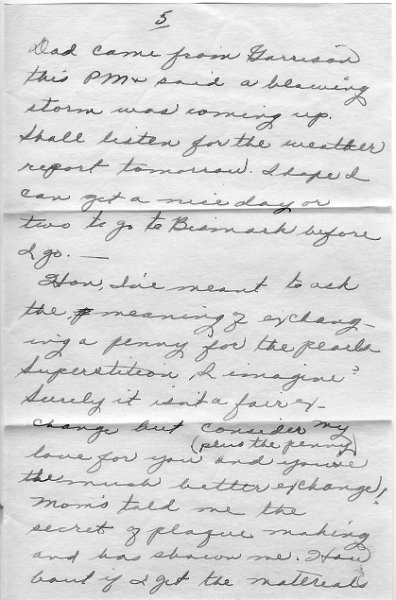 5
Dad came from Garrison
this PM & said a blowing
storm was coming up.
Shall listen for the weather
report tomorrow. I hope I
can get a nice day or
two to go to Bismark before
I go. —
Hon, I've meant to ask
the meaning of exchang-
ing a penny for the pearls
Superstition, I imagine?
Surely it isn't a fair ex-
change but consider my
(plus the penny)
love for you and you've
the much better exchange!
Mom's told me the
secret of plaque making
and has shown me. How
bout if I get the materials